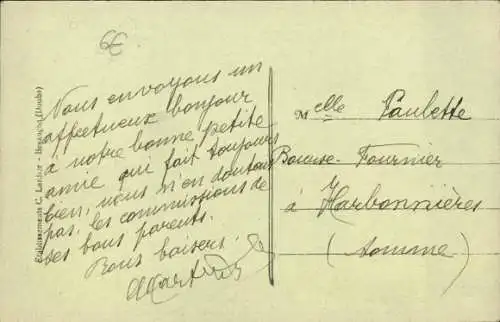 6€
Nous envoyons un
affectueux bonjour
à notre bonne petite
amie qui fait toujours
bien, nous n'en doutons
pas, les commissions de
ses bons parents.
Bons baisers.
Melle Paulette
Fournier
à Harbonnières
(Somme)
Etablissements C. Lardier - Besançon (Doubs)